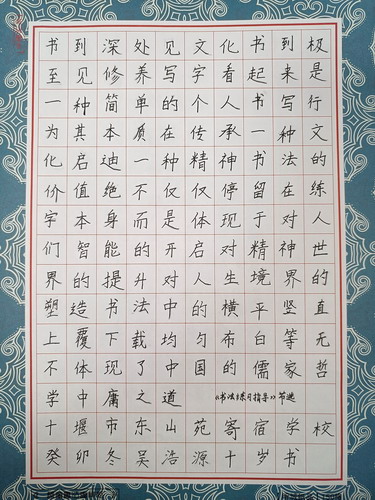 书到深处见文化书到极
至见修养写字看起来是
一种简单的个人书写行
为其本质在传承一种文
化启迪一种精神书法的
价值绝不仅仅停留在练
字本身而是体现于对人
们智能的开启对精神世
界的提升对人生境界的
塑造书法中的横平竖直
上覆下载均匀布白等无
不体现了中国的儒家哲
学中庸之道 《书法练习指导》节选
十堰市东山苑寄宿学校
癸卯冬吴浩源十岁书